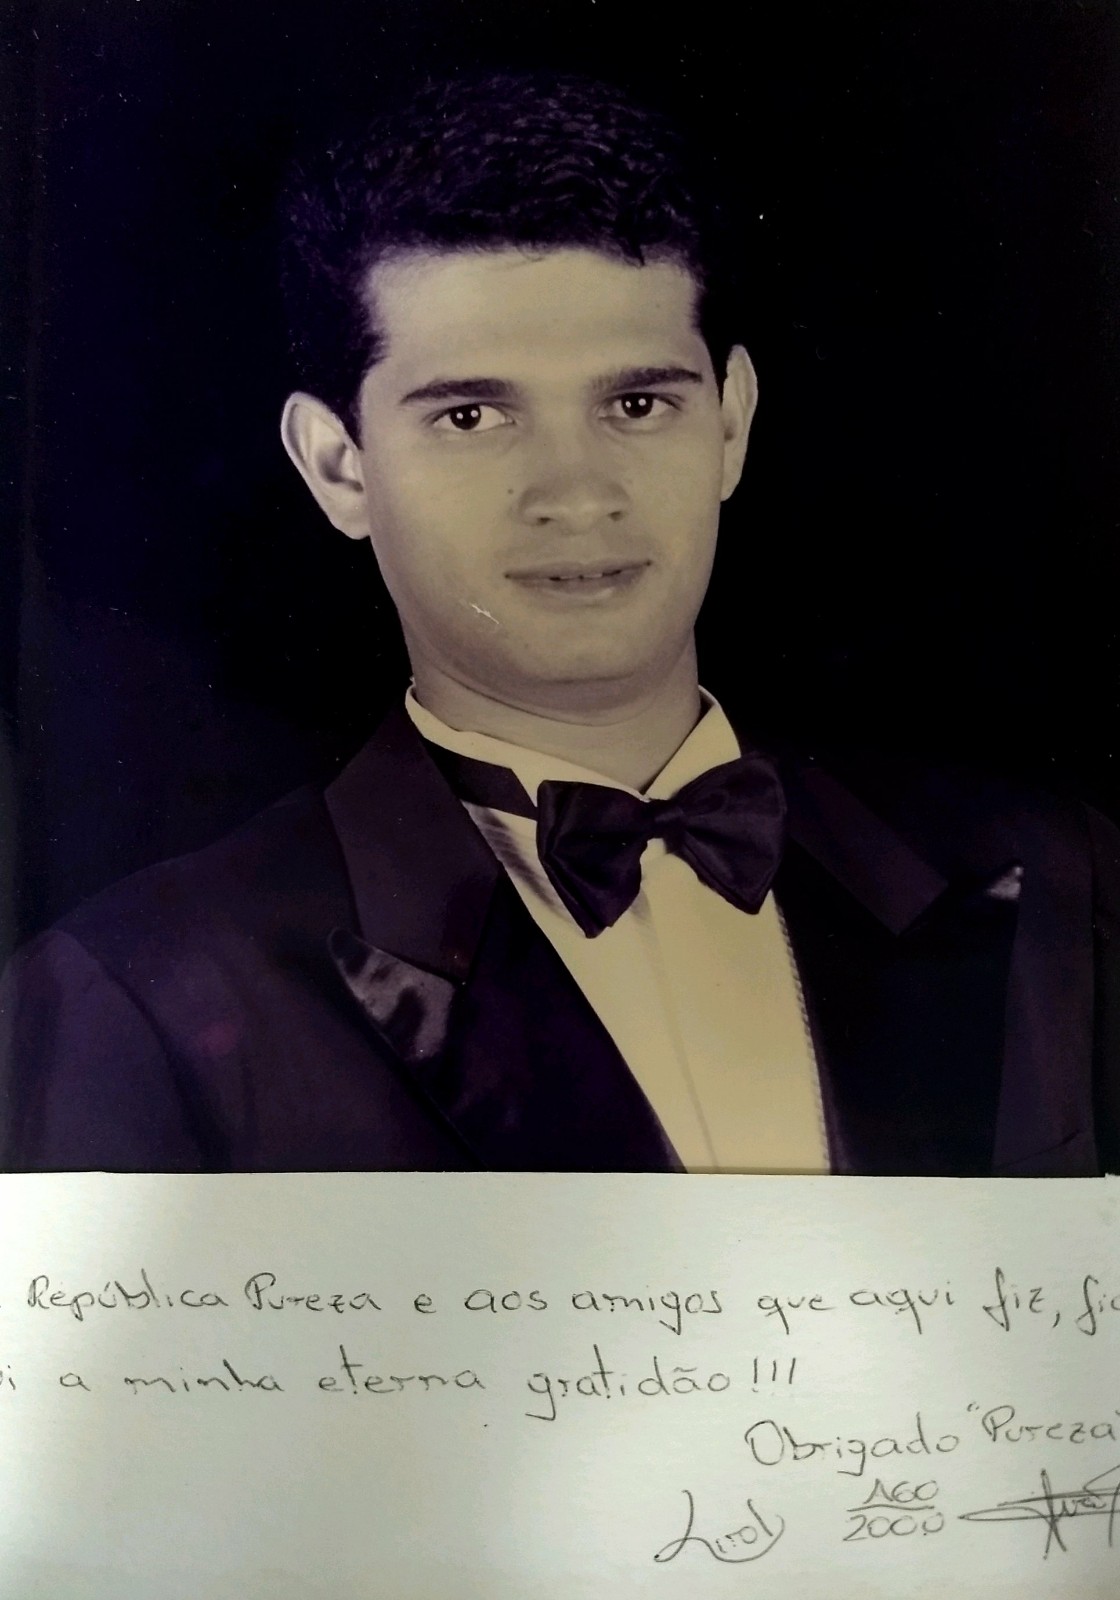 República Pureza e aos amigos que aqui fiz,
a minha eterna gratidão!!!
Obrigado "Pureza"
AGO
2000